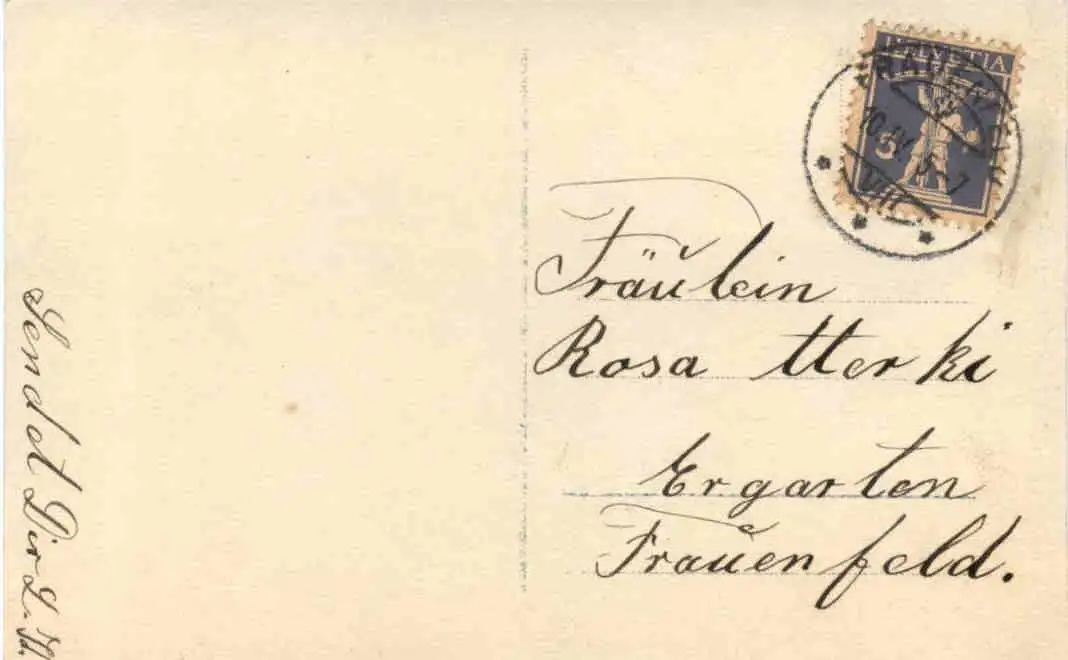 HELVETIA
5
10.IV. 5-7
VIII
Fräulein
Rosa Herki
Ergarten
Frauenfeld.
Sendet Dir L.